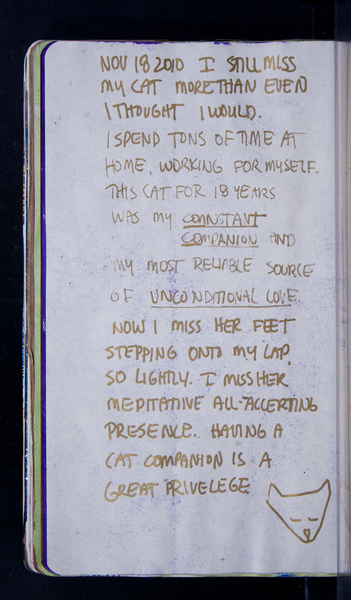 NOV 18 2010 I STILL MISS
MY CAT MORE THAN EVEN
I THOUGHT I WOULD.
I SPEND TONS OF TIME AT
HOME, WORKING FOR MYSELF.
THIS CAT FOR 18 YEARS
WAS MY CONNSTANT
COMPANION AND
MY MOST RELIABLE SOURCE
OF UNCONDITIONAL LOVE.
NOW I MISS HER FEET
STEPPING ONTO MY LAP,
SO LIGHTLY. I MISS HER
MEDITATIVE ALL-ACCEPTING
PRESENCE. HAVING A
CAT COMPANION IS A
GREAT PRIVELEGE